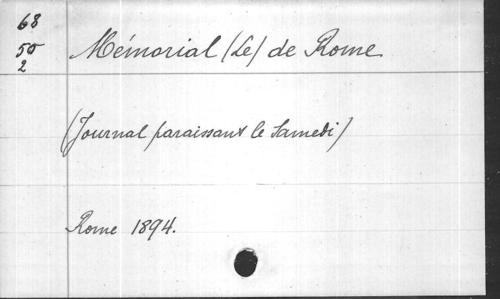 68
50
2
Mémorial (Le) de Rome
(Journal paraissant le Samedi)
Rome 1894.